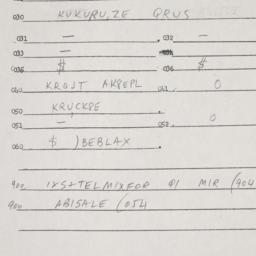 030 KUKURU,ZE QRUS
031 — 032 —
033 —
035 $ 036 $
040 KROJT AKPEPL 041. 0
050 KRUCKPE
051 — 052. 0
060 $ )BEBLAX
900 MIR (904
900 ABISALE (054